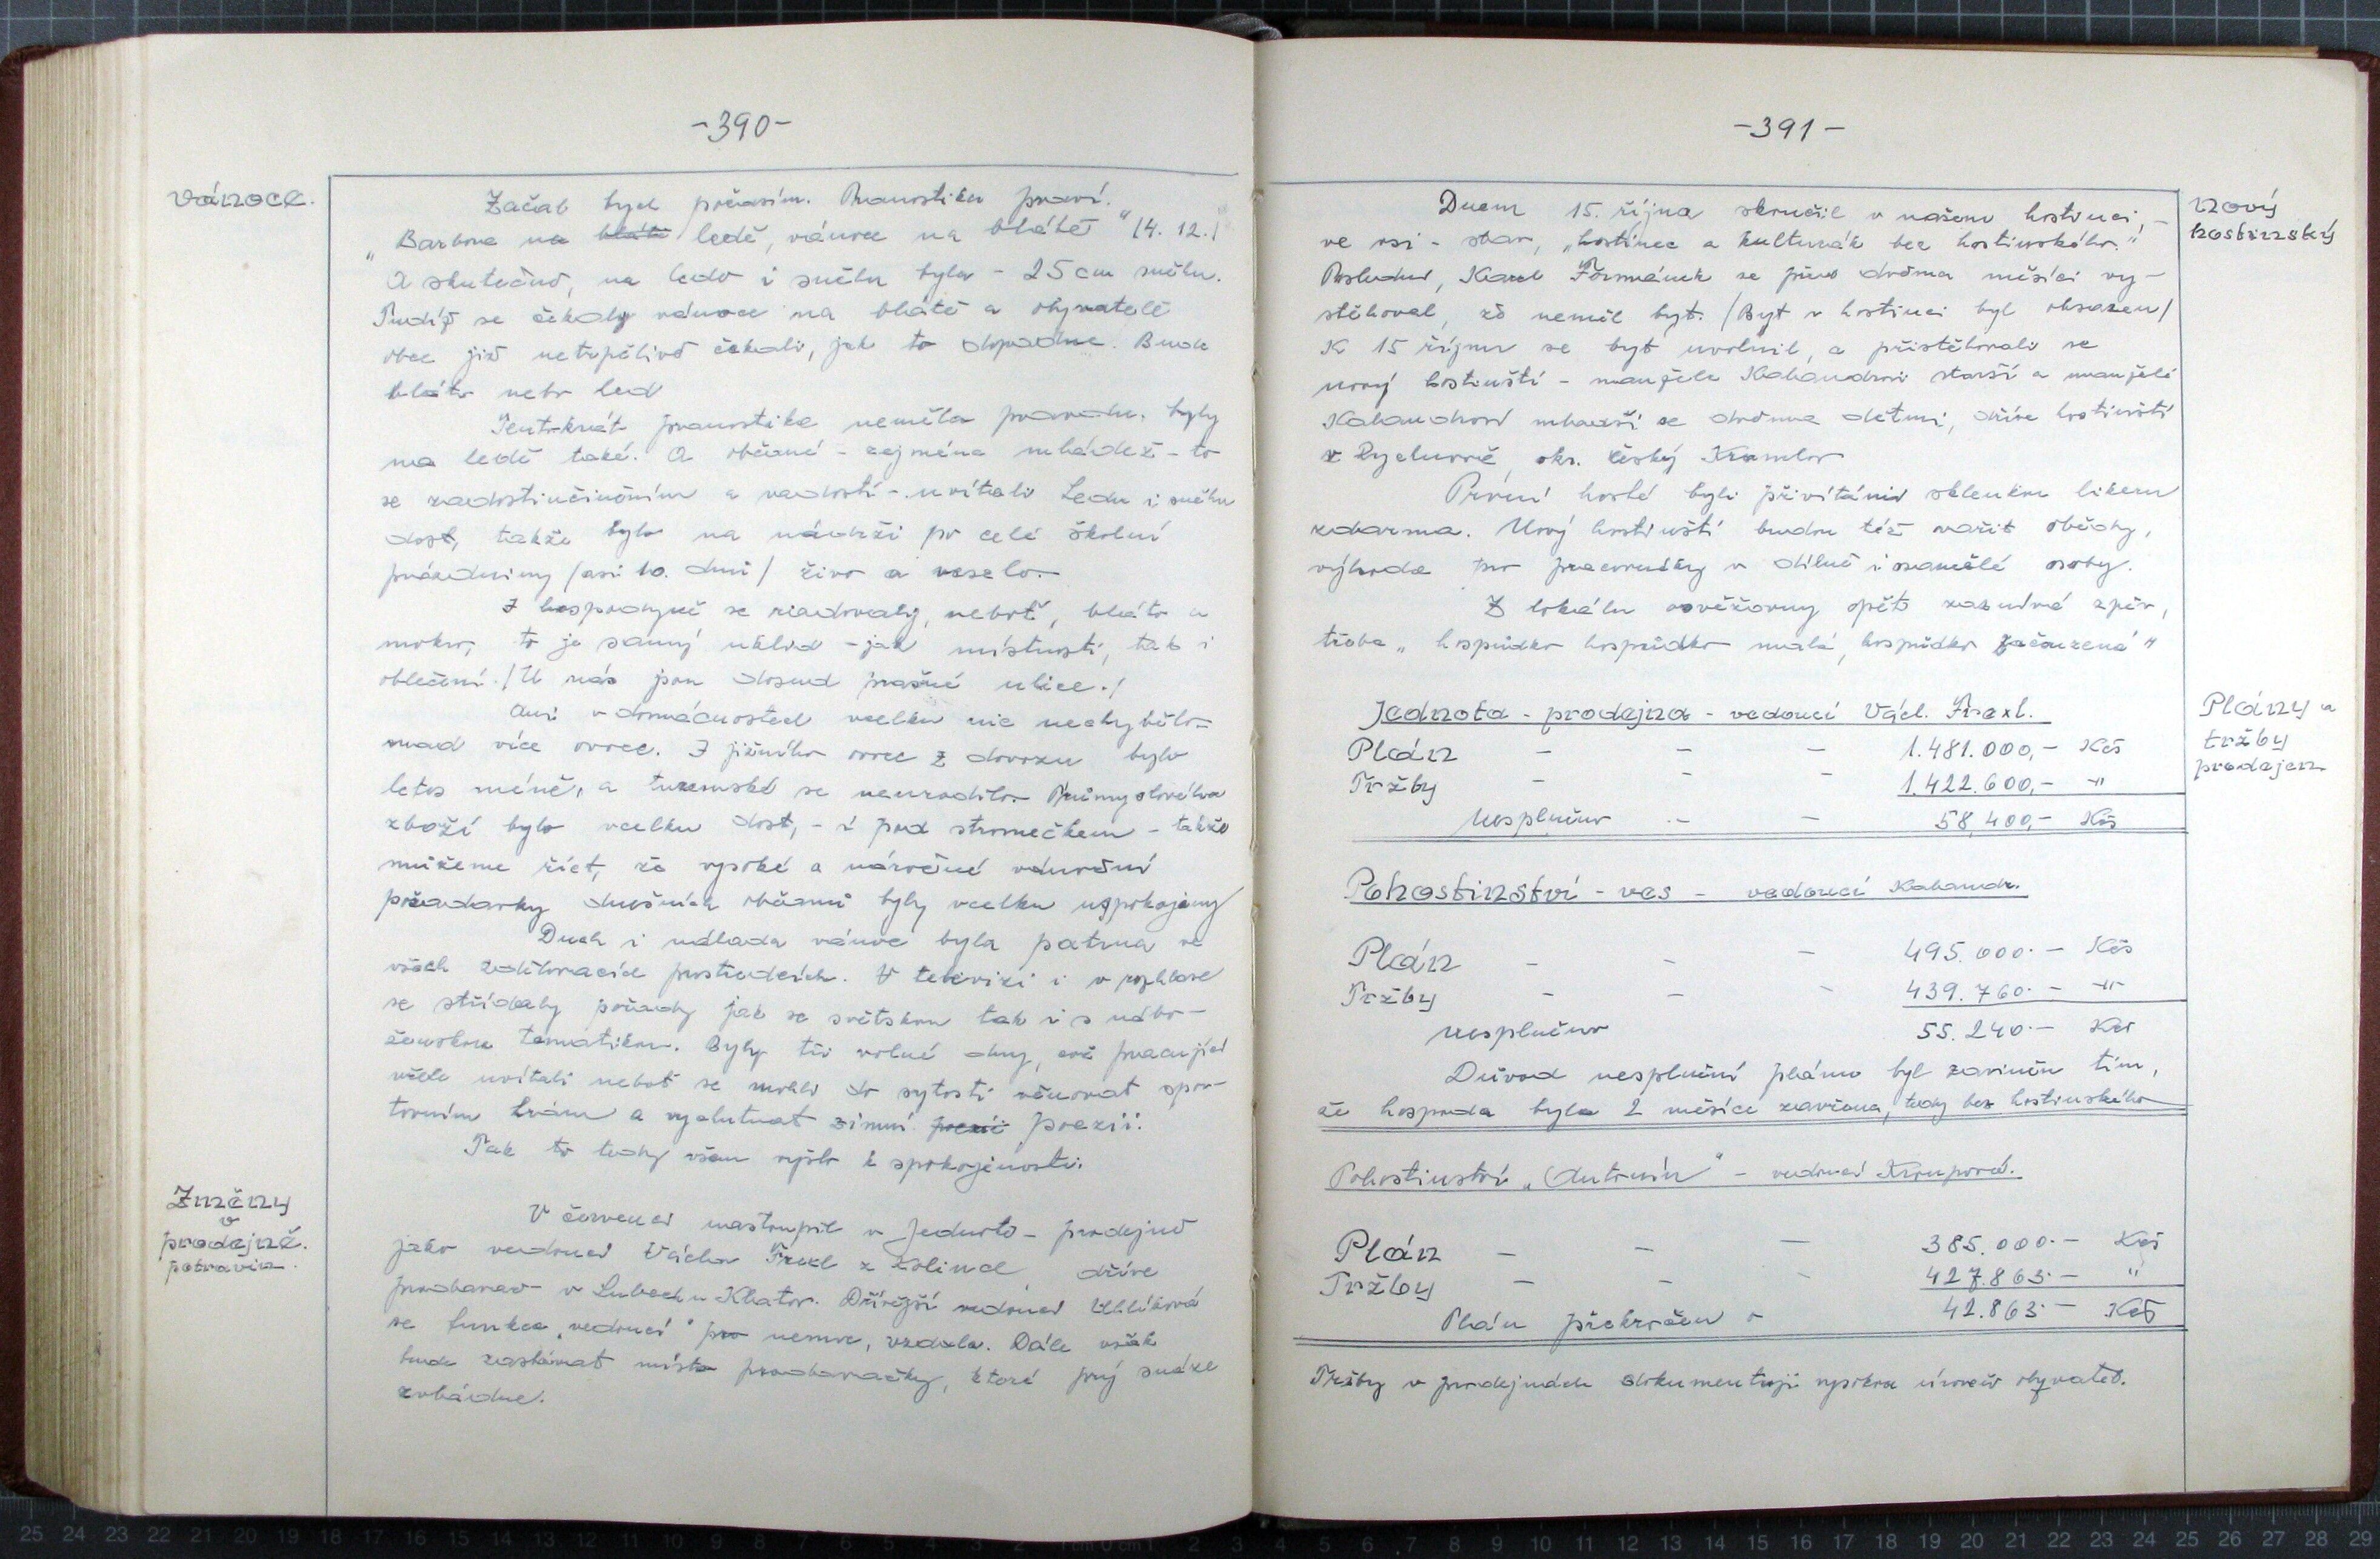 -390-
Vánoce.
Začal bych počasím. Pranostika praví.
"Barbora na blátě ledě, vánoce na blátě" (4. 12.)
A skutečně, na ledě i sněhu byla - 25 cm sněhu.
Tudíž se čekaly vánoce na blátě a obyvatelé
obce již netrpělivě čekali, jak to dopadne. Bude
bláto nebo led
Tentokrát pranostika neměla pravdu. byly
na ledě také. A občané - zejména mládež - to
se zadostiučiněním a radostí - uvítali Ledu i sněhu
dost, takže bylo na nádrži po celé školní
prázdniny /asi 10. dní/ živo a veselo.
I hospodyně se radovaly, neboť, bláto a
mokro, to je samý úklid - jak místností, tak i
oblečení. /U nás jsou dosud prašné ulice./
Ani v domácnostech vcelku nic nechybělo -
snad více ovoce. I jižního ovoce z dovozu bylo
letos méně, a tuzemské se neurodilo. Průmyslového
zboží bylo vcelku dost, - i pod stromečkem - takže
můžeme říct, že vysoké a náročné vánoční
požadavky dnešních občanů byly vcelku uspokojeny
Duch i nálada vánoc byla patrna ve
všech sdělovacích prostředcích. V televizi i v rozhlase
se střídaly pořady jak se světskou tak i s nábo-
ženskou tematikou. Byly tři volné dny, což pracující
vřele uvítali neboť se mohli do sytosti věnovat spor-
tovním hrám a vychutnat zimní poezii poezii.
Tak to tedy všem vyšlo k spokojenosti.
Změny
v
prodejně.
potravin.
V červenci nastoupil v Jednotě - prodejně
jako vedoucí Václav Trexl z Kolince, dříve
prodavač v Lubech u Klatov. Dřívější vedoucí Uhlíková
se funkce "vedoucí" pro nemoc, vzdala. Dále však
bude zastávat místo prodavačky, které prý snáze
zvládne.
-391-
Nový
hostinský
Dnem 15. října skončil v našem hostinci, -
ve vsi - stav, "hostinec a kulturák bez hostinského."
Poslední, Karel Formánek se před dvěma měsíci vy-
stěhoval, že neměl byt. /Byt v hostinci byl obsazen/
K 15 říjnu se byt uvolnil, a přistěhovali se
nový hostinští - manželé Kabaudovi starší a manželé
Kabaudovi mladší se dvěma dětmi, dříve hostinští
z Rychnově, okr. český Krumlov
První hosté byli přivítáni sklenkou likeru
zdarma. Nový hostinští budou též vařit obědy,
výhoda pro pracovníky v dílně i osamělé osoby.
Z lokálu osvěžovny opět zaznívá zpěv,
třeba "hospůdko hospůdko malá, hospůdko začouzená"
Plány a
tržby
prodejen
Jednota - prodejna - vedoucí Václ. Trexl.
Plán - - - 1.481.000,- Kčs
Tržby - - - 1.422.600,- -"
Nesplněno - - 58,400,- Kčs
Pohostinství - ves - vedoucí Kabaud.
Plán - - - 495.000.- Kčs
Tržby - - - 439.760.- -"-
nesplněno 55.240.- Kčs
Důvod nesplnění plánu byl zaviněn tím,
že hospoda byla 2 měsíce zavřena, tedy bez hostinského
Pohostinství "Antonín" - vedoucí Kroupová.
Plán - - - 385.000.- Kčs
Tržby - - - 427.863.- "
Plán překročen o 42.863.- Kčs
Tržby v prodejnách dokumentují vysokou úroveň obyvatel.